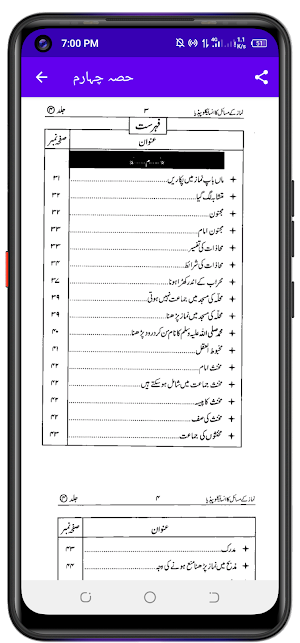 7:00 PM 4G 1.1 K/s 51
حصہ چہارم
نماز کے مسائل کا انسائیکلوپیڈیا ۳ جلد ④
فہرست
عنوان صفحہ نمبر
ماں باپ نماز میں پکاریں ۳۱
متشابہ لگ گیا ۳۲
مجنون ۳۲
مجنون امام ۳۳
محاذات کی تفسیر ۳۳
محاذات کی شرائط ۳۴
محراب کے اندر کھڑا ہونا ۳۷
محلہ کی مسجد میں جماعت نہیں ہوتی ۳۹
محلہ کی مسجد میں نماز پڑھنا ۳۹
محمد صلی اللہ علیہ وسلم کا نام سن کر درود پڑھنا ۴۰
مخبوط العقل ۴۱
مخنث امام ۴۲
مخنث جماعت میں شامل ہو سکتے ہیں ۴۲
مخنث کا پیسہ ۴۲
مخنث کی صف ۴۲
مخنثوں کی جماعت ۴۳
نماز کے مسائل کا انسائیکلوپیڈیا ۴ جلد ④
عنوان صفحہ نمبر
مدرک ۴۳
مذبح میں نماز پڑھنا منع ہونے کی وجہ ۴۴